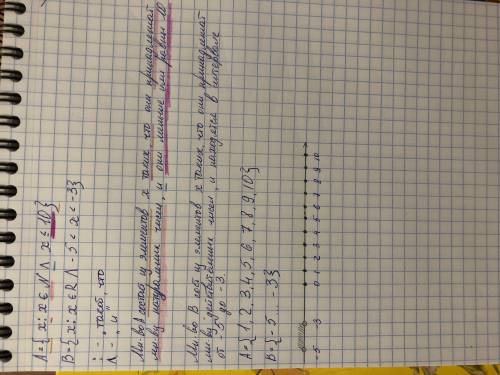 A={x: x∈N ∧ x≤10}
B={x: x∈R ∧ -5<x<-3}
: - „такой, что
∧ - „и"
Мн-во A состоит из элементов x таких, что они принадлежат
мн-ву натуральных чисел, и они меньше или равны 10
Мн-во B сост из элементов x таких, что они принадлежат
мн-ву действительных чисел, и находятся в интервале
от -5 до -3.
A={1, 2, 3, 4, 5, 6, 7, 8, 9, 10}
B={-5 ... -3}
-5 -3 0 1 2 3 4 5 6 7 8 9 10